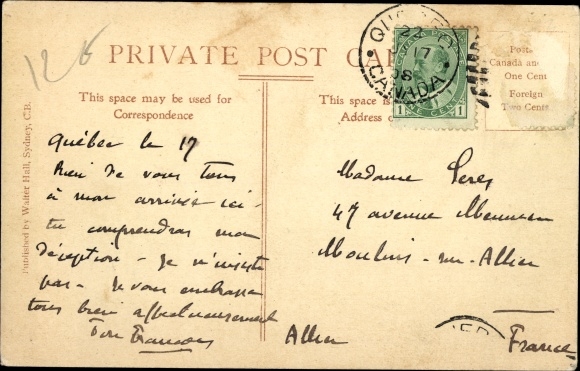 12f
PRIVATE POST
This space may be used for
Correspondence
This space is
Address
CANADA
17
08
CANADA POSTAGE
1 1
ONE CENT
Post
Canada an
One Cent
Foreign
Two Cents
Published by Walter Hall, Sydney, C.B.
Québec le 17
Rien de vous tous
à mon arrivée ici -
tu comprendras ma
déception - Je n'insiste
pas - Je vous embrasse
tous bien affectueusement
Ton François
Madame
47 avenue
Moulins - sur - Allier
Allier
France